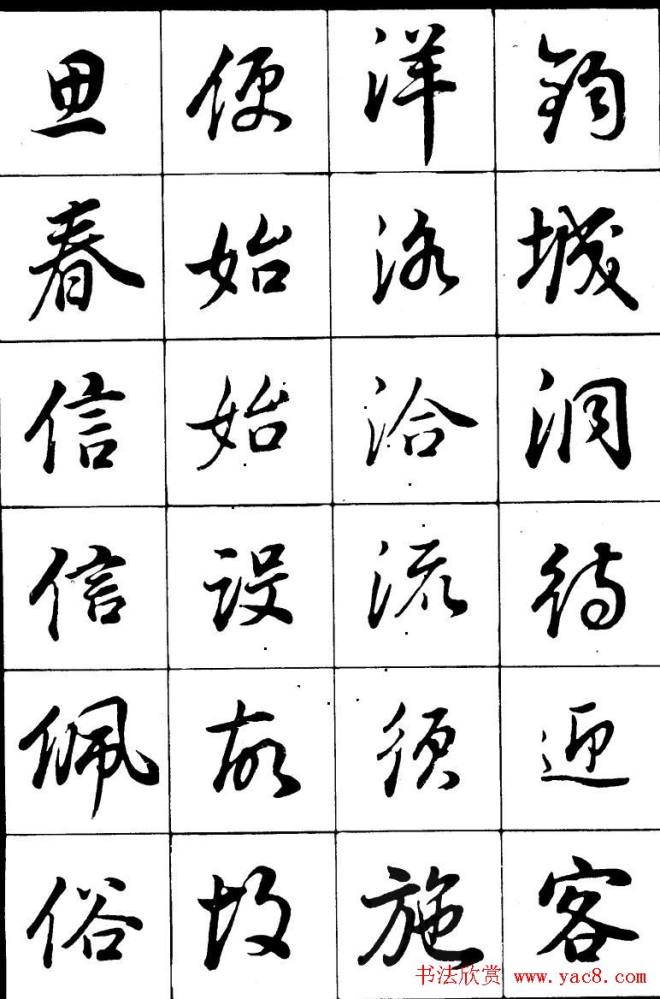 钧城洞待迎客
洋洛洽流须施
便始始设故故
思春信信佩俗
书法欣赏 www.yac8.com